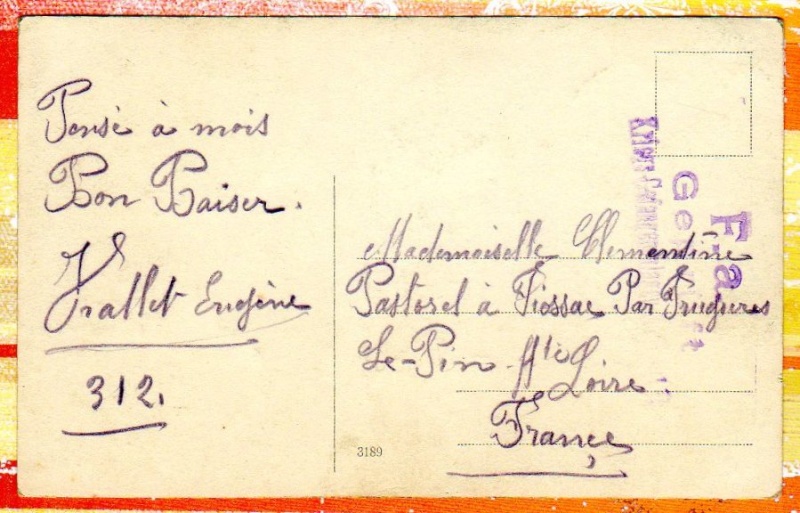 Pensé à mois
Bon Baiser.
Vrallet Eugène
312.
Mademoiselle Clementine
Pastorel à Fiossac Par Frugieres
Le-Pin Hte Loire
France
3189
F.a.
Gep